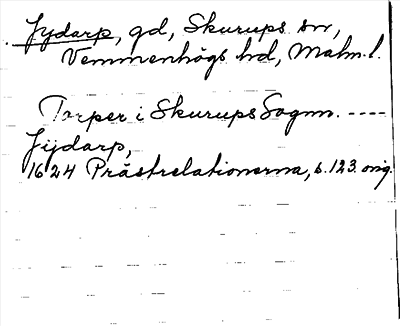 Jydarp, gd, Skurups sn,
Vemmenhögs hd, Malm. l.
Torper i Skurups Sognn. ----
Jijdarp,
1624 Prästrelationerna, s. 123. orig.